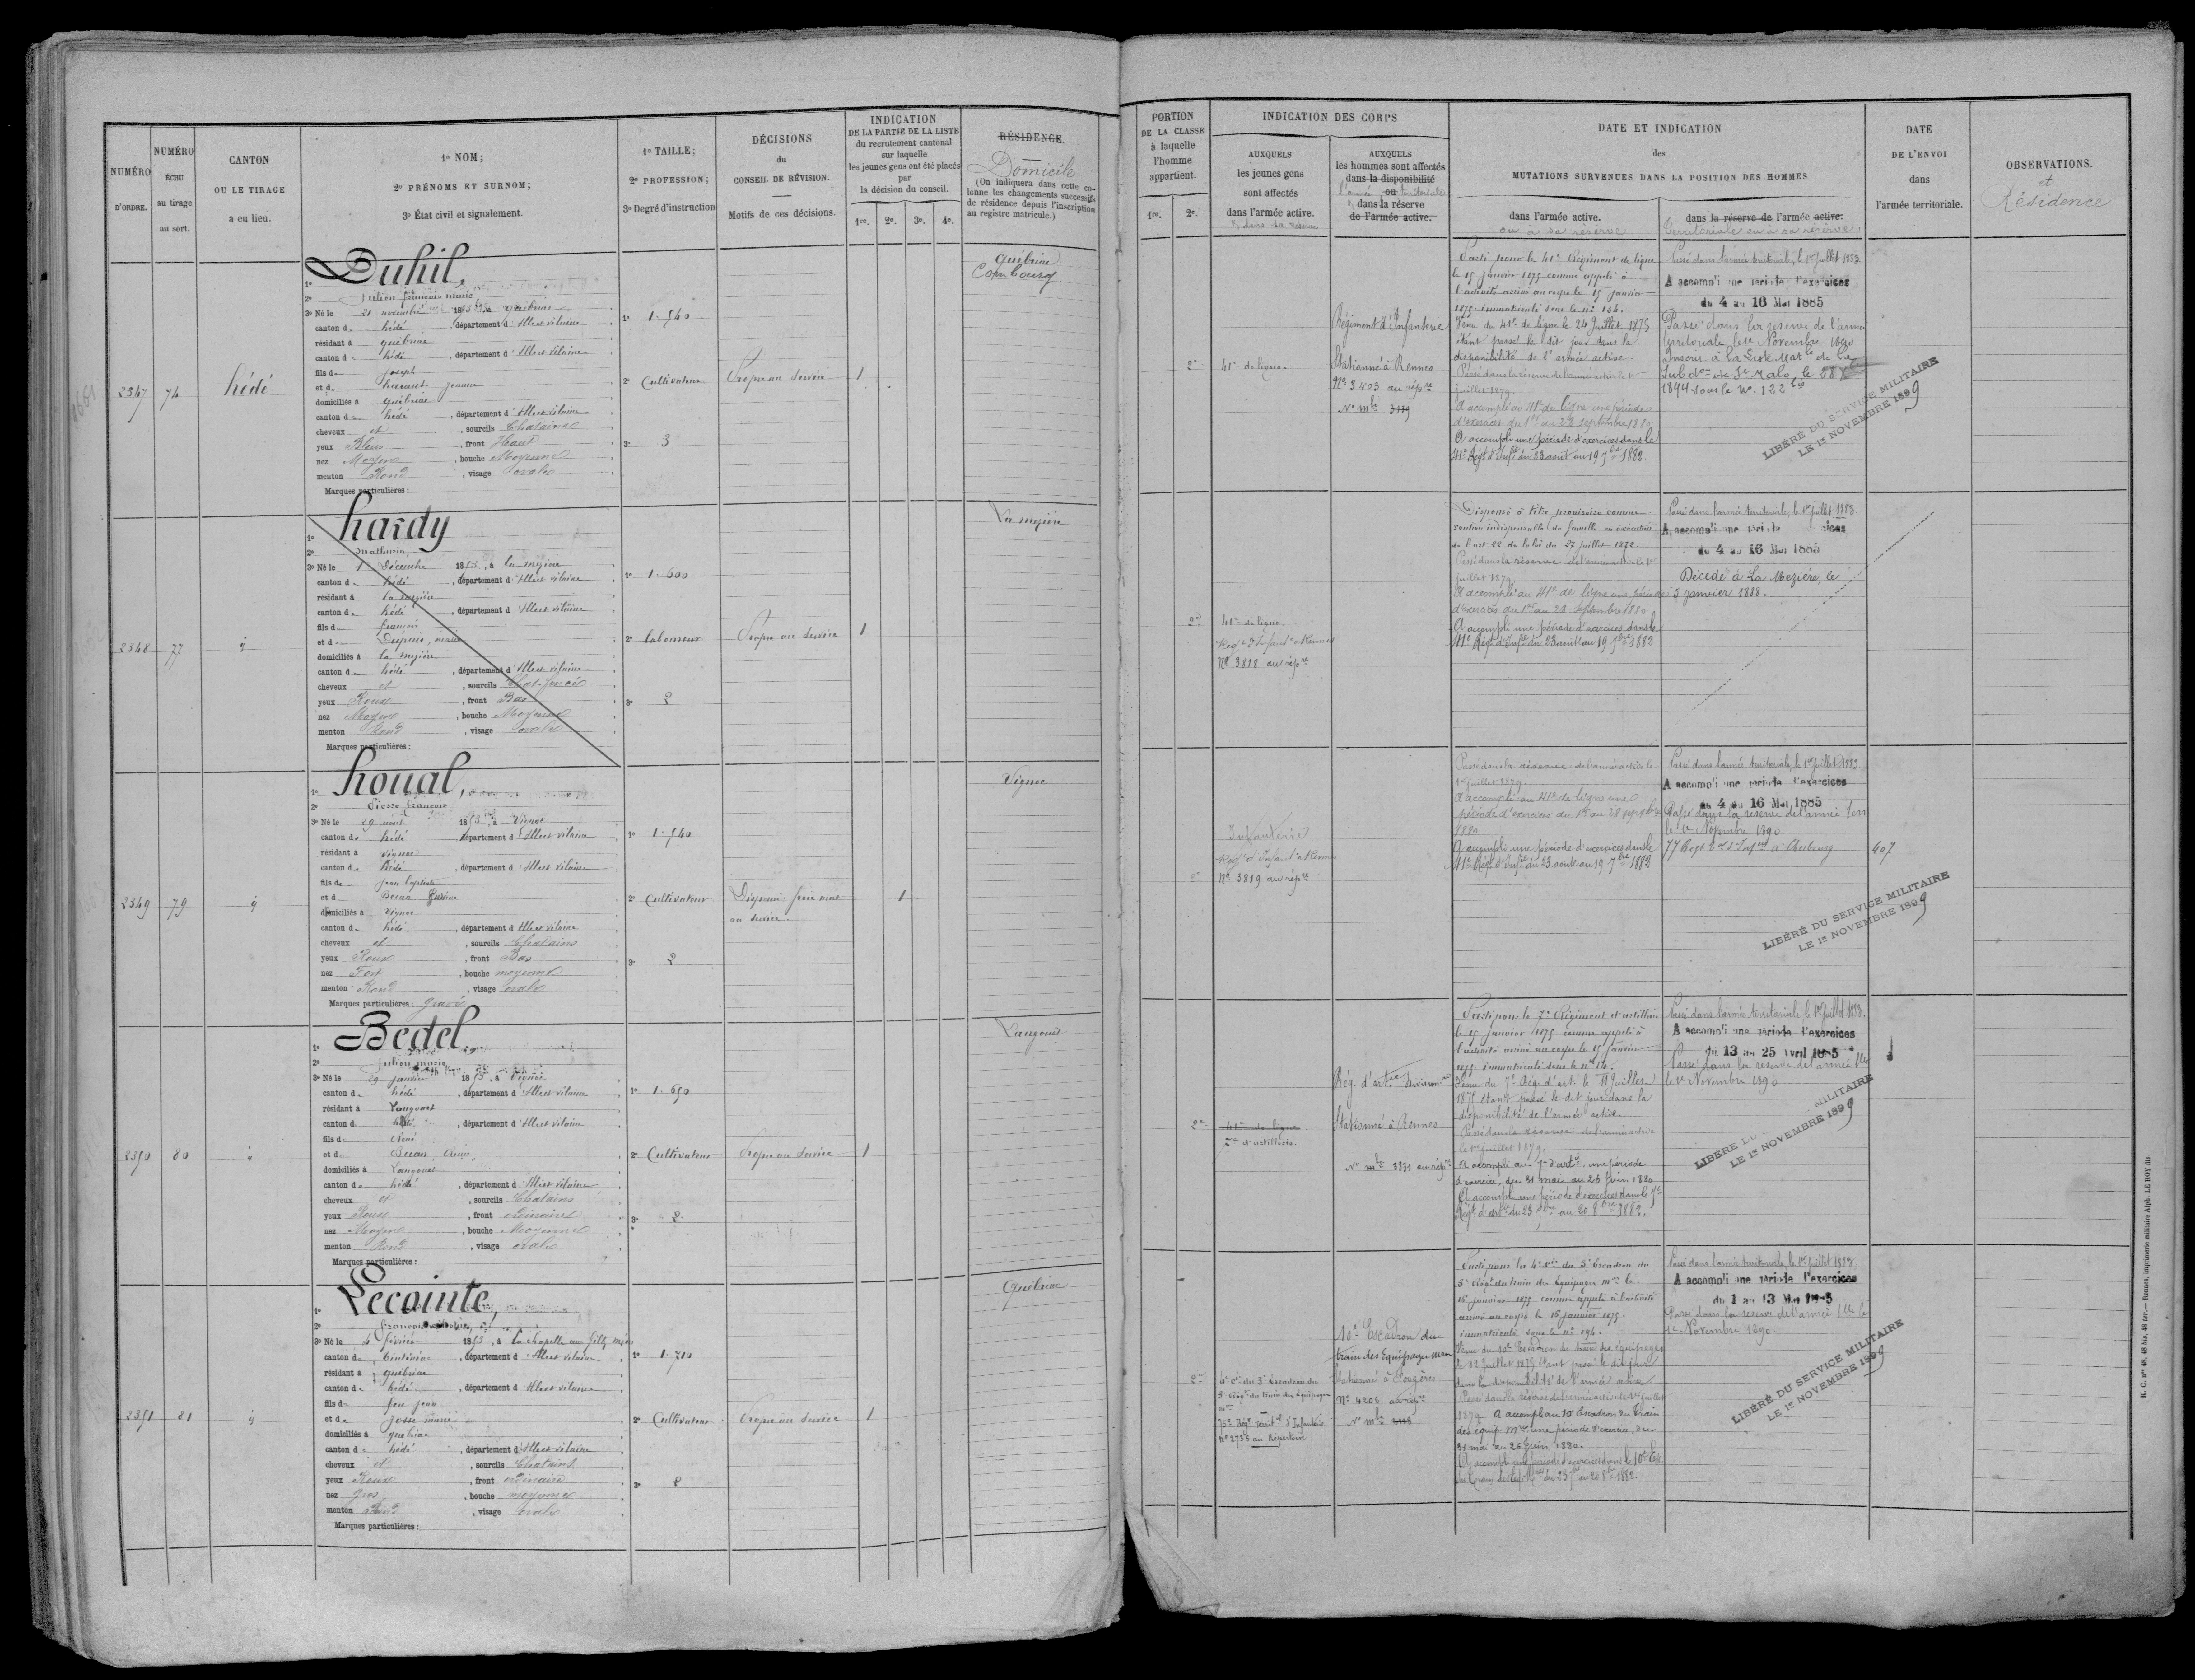 NUMÉRO
D'ORDRE.
NUMÉRO
ÉCHU
au tirage
au sort.
CANTON
OU LE TIRAGE
a eu lieu.
1º NOM;
2º PRÉNOMS ET SURNOM;
3º État civil et signalement.
1º TAILLE;
2º PROFESSION;
3º Degré d'instruction
DÉCISIONS
du
CONSEIL DE RÉVISION.
Motifs de ces décisions.
INDICATION
DE LA PARTIE DE LA LISTE
du recrutement cantonal
sur laquelle
les jeunes gens ont été placés
par
la décision du conseil.
1re. 2e. 3e. 4e.
RÉSIDENCE.
Domicile
(On indiquera dans cette co-
lonne les changements successifs
de résidence depuis l'inscription
au registre matricule.)
2347 74 hédé
1º Duhil,
2º Julien françois marie
3º Né le 21 novembre 1853, à québriac
canton de hédé, département d'Ille et vilaine
résidant à québriac
canton de hédé, département d'Ille et vilaine
fils de joseph
et de jeanne
domiciliés à québriac
canton de hédé, département d'Ille et vilaine
cheveux et, sourcils Chatains
yeux Bleus, front Haut
nez Moyen, bouche Moyenne
menton Rond, visage ovale
Marques particulières:
1º 1. 540
2º Cultivateur
3º 3
Propre au service
1
québriac
Combourg
2348 77 id
1º hardy
2º Mathurin,
3º Né le 1 Décembre 1853, à la mezière
canton de hédé, département d'Ille et vilaine
résidant à la mezière
canton de hédé, département d'Ille et vilaine
fils de françois
et de marie
domiciliés à la mezière
canton de hédé, département d'Ille et vilaine
cheveux et, sourcils Chat. foncés
yeux Roux, front Bas
nez Moyen, bouche Moyenne
menton Rond, visage ovale
Marques particulières:
1º 1. 600
2º laboureur
3º 2
Propre au service
1
La mezière
2349 79 id
1º houal,
2º Pierre françois
3º Né le 29 août 1853, à Vignoc
canton de hédé, département d'Ille et vilaine
résidant à vignoc
canton de hédé, département d'Ille et vilaine
fils de jean baptiste
et de
domiciliés à vignoc
canton de hédé, département d'Ille et vilaine
cheveux et, sourcils Chatains
yeux Roux, front Bas
nez Fort, bouche moyenne
menton Rond, visage ovale
Marques particulières: gravé
1º 1. 540
2º Cultivateur
3º 2
Dispensé frère mort
au service.
1
Vignoc
2350 80
1º Bedel,
2º julien marie
3º Né le 29 janvier 1853, à Vignoc
canton de hédé, département d'Ille et vilaine
résidant à Langouet
canton de hédé, département d'Ille et vilaine
fils de René
et de
domiciliés à Langouet
canton de hédé, département d'Ille et vilaine
cheveux et, sourcils Chatains
yeux Roux, front ordinaire
nez Moyen, bouche Moyenne
menton Rond, visage ovale
Marques particulières:
1º 1. 650
2º Cultivateur
3º 2
Propre au service
1
Langouet
2351 81 id
1º Lecointe,
2º françois
3º Né le 4 février 1853, à La chapelle aux filtz méens
canton de Tinténiac, département d'Ille et vilaine
résidant à québriac
canton de hédé, département d'Ille et vilaine
fils de feu jean
et de josse marie
domiciliés à québriac
canton de hédé, département d'Ille et vilaine
cheveux et, sourcils Chatains
yeux Roux, front ordinaire
nez gros, bouche moyenne
menton Rond, visage ovale
Marques particulières:
1º 1. 710
2º Cultivateur
3º 2
Propre au service
1
Québriac
PORTION
DE LA CLASSE
à laquelle
l'homme
appartient.
1re. 2e.
INDICATION DES CORPS
AUXQUELS
les jeunes gens
sont affectés
dans l'armée active.
& dans la réserve
AUXQUELS
les hommes sont affectés
dans la disponibilité
l'armée ou territoriale
& dans la réserve
de l'armée active.
DATE ET INDICATION
des
MUTATIONS SURVENUES DANS LA POSITION DES HOMMES
dans l'armée active.
ou à sa réserve
dans la réserve de l'armée active.
territoriale ou à sa réserve.
DATE
DE L'ENVOI
dans
l'armée territoriale.
OBSERVATIONS.
et
Résidence
2e 41e de ligne.
Régiment d'Infanterie
Stationné à Rennes
Nº 3403 au rép re
Nº mle
Parti pour le 41e Régiment de ligne
le 15 janvier 1875 comme appelé à
l'activité arrivé au corps le 15 janvier
1875 immatriculé sous le nº 184.
Venu du 41e de ligne le 24 juillet 1875
étant passé le dit jour dans la
disponibilité de l'armée active.
Passé dans la réserve de l'armée active le 1er
juillet 1879.
A accompli au 41e de ligne une période
d'exercices du 1er au 28 septembre 1880
A accompli une période d'exercices dans le
41e Régt d'Infie du 23 août au 19 7bre 1882.
Passé dans l'armée territoriale, le 1er juillet 1883
A accompli une période d'exercices
du 4 au 16 Mai 1885
Passé dans la réserve de l'armée
territoriale le 1er Novembre 1890
Inscrit à la Liste Matle de la
Subdon de St Malo, le
1894 sous le Nº 122 bis
LIBÉRÉ DU SERVICE MILITAIRE
LE 1er NOVEMBRE 1899
2e 41e de ligne.
Regt d'Infante à Rennes
Nº 3818 au répre
Dispensé à titre provisoire comme
soutien indispensable de famille en exécution
de l'art 22 de la loi du 27 juillet 1872
Passé dans la réserve de l'armée active le 1er
juillet 1879
A accompli au 41e de ligne une période
d'exercices du 1er au 28 septembre 1880
A accompli une période d'exercices dans le
41e Régt d'Infie du 23 août au 19 7bre 1882
Passé dans l'armée territoriale, le 1er juillet 1883
A accompli une période
du 4 au 16 Mai 1885
Décédé à La Mezière, le
5 janvier 1888.
2e
Infanterie
Regt d'Infante à Rennes
Nº 3819 au répre
Passé dans la réserve de l'armée active le
1er juillet 1879.
A accompli au 41e de ligne une
période d'exercices du 1er au 28 septembre
1880
A accompli une période d'exercices dans le
41e Régt d'Infie du 23 août au 19 7bre 1882
Passé dans l'armée territoriale, le 1er juillet 1883
A accompli une période d'exercices
du 4 au 16 Mai 1885
Passé dans la réserve de l'armée Terr
le 1er Novembre 1890
77 Regt à Cherbourg
407
LIBÉRÉ DU SERVICE MILITAIRE
LE 1er NOVEMBRE 1899
2e
41e de ligne
7e d'artillerie.
Rég. d'artie
Stationné à Rennes
Nº mle 3831 au répre
Parti pour le 7e Régiment d'artillerie
le 15 janvier 1875 comme appelé à
l'activité arrivé au corps le 15 janvier
1875 immatriculé sous le
Venu du 7e Rég. d'art. le juillet
1875 étant passé le dit jour dans la
disponibilité de l'armée active.
Passé dans la réserve de l'armée active
le 1er juillet 1879.
A accompli au 7e d'artie une période
d'exercice, du 31 mai au 26 juin 1880
A accompli une période d'exercices dans le 7e
Régt d'artie du 23 7bre au 20 8bre 1882.
Passé dans l'armée territoriale, le 1er juillet 1883.
A accompli une période d'exercices
du 13 au 25 Avril 1885
Passé dans la réserve de l'armée tle
le 1er Novembre 1890
LIBÉRÉ MILITAIRE
LE 1er NOVEMBRE 1899
2e
4e Cie du 5e Escadron du
5e Régt du train des Equipages
75e Régt territal d'Infanterie
nº 2755 au Répertoire
10e Escadron du
train des Equipages
Stationné à Fougères
Nº 4206 au répre
Nº mle
Parti pour la 4e Cie du 5e Escadron du
5e Régt du train des Equipages mres le
16 janvier 1875 comme appelé à l'activité
arrivé au corps le 16 janvier 1875.
immatriculé sous le nº 194.
Venu du 10e Escadron du train des équipages
le 12 juillet 1875 étant passé le dit jour
dans la disponibilité de l'armée active
Passé dans la réserve de l'armée active le 1er juillet
1879. A accompli au 10e Escadron du Train
des équip. mres une période d'exercice, du
31 mai au 26 juin 1880.
A accompli une période d'exercices dans le 10e Esc
du train des Equip. du 23 7bre au 20 8bre 1882
Passé dans l'armée territoriale, le 1er juillet 1883
A accompli une période d'exercices
du 1 au 13 Mai 1885
Passé dans la réserve de l'armée tle le
1er Novembre 1890
LIBÉRÉ DU SERVICE MILITAIRE
LE 1er NOVEMBRE 1899
R. C. nos 48, 48 bis, 48 ter.— Rennes, imprimerie militaire Alph. LE ROY fils